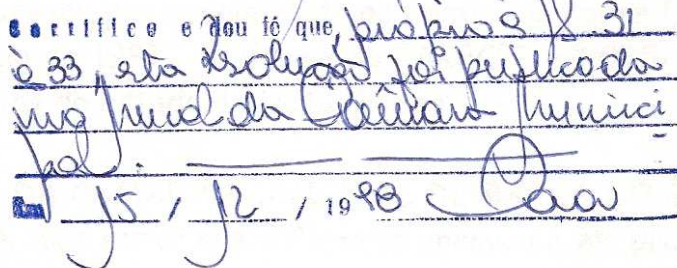 Certifico e dou fé que, às fls 31
à 33, esta Resolução foi publicada
no mural da Câmara Munici
pal.
Em 15 / 12 / 1998